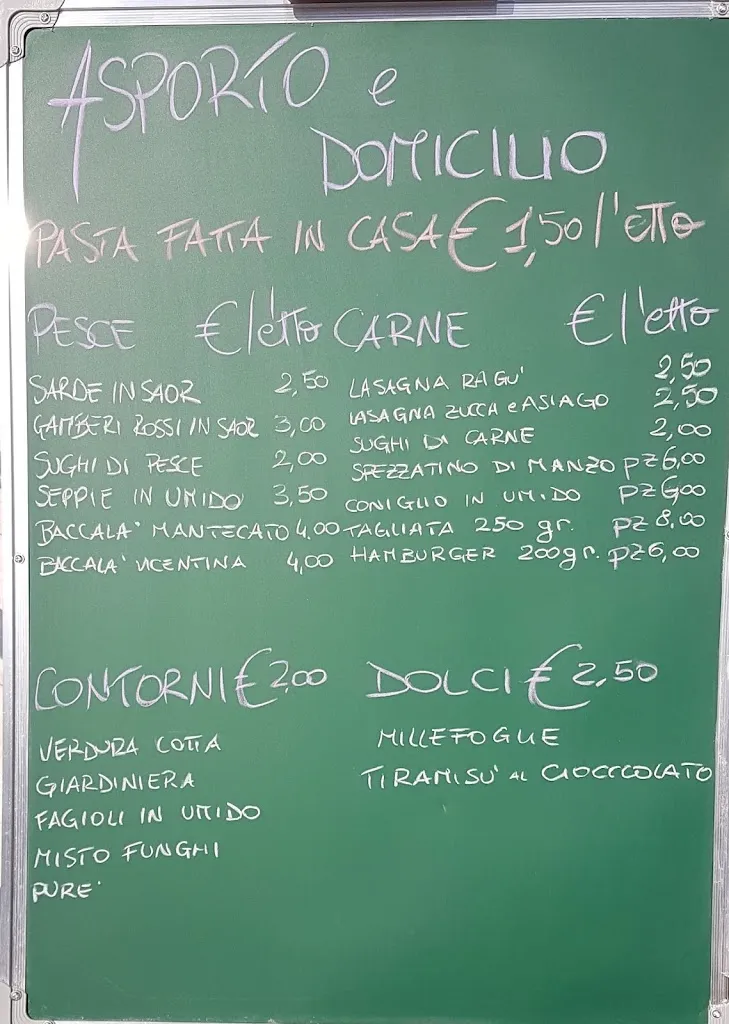 ASPORTO e
DOMICILIO
PASTA FATTA IN CASA € 1,50 l'etto
PESCE € l'etto
SARDE IN SAOR 2,50
GAMBERI ROSSI IN SAOR 3,00
SUGHI DI PESCE 2,00
SEPPIE IN UMIDO 3,50
BACCALA' MANTECATO 4,00
BACCALA' VICENTINA 4,00
CARNE € l'etto
LASAGNA RAGU' 2,50
LASAGNA ZUCCA e ASIAGO 2,50
SUGHI DI CARNE 2,00
SPEZZATINO DI MANZO PZ 6,00
CONIGLIO IN UMIDO PZ 6,00
TAGLIATA 250 gr. PZ 8,00
HAMBURGER 200gr. PZ 6,00
CONTORNI € 2,00
VERDURA COTTA
GIARDINIERA
FAGIOLI IN UMIDO
MISTO FUNGHI
PURE'
DOLCI € 2,50
MILLEFOGLIE
TIRAMISU' AL CIOCCCOLATO